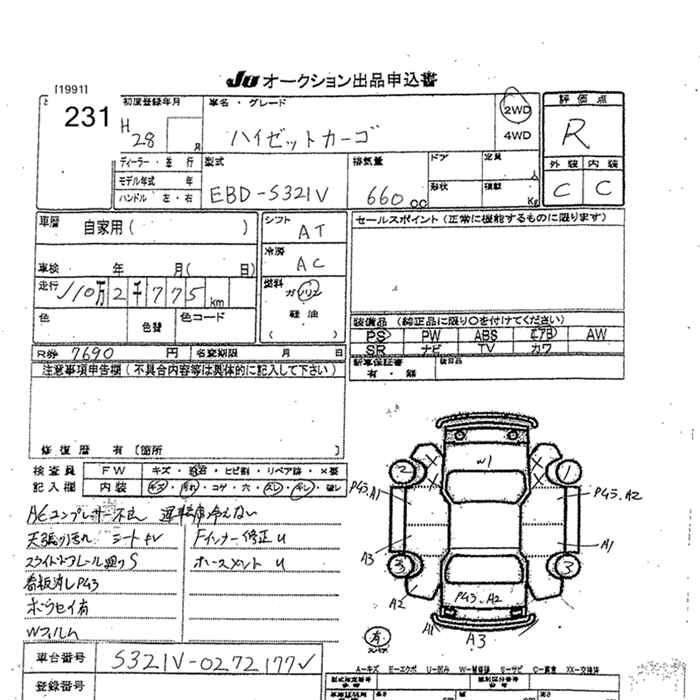 JU オークション出品申込書
[1991]
231
初度登録年月
H 28 月
車名・グレード
ハイゼットカーゴ
2WD
4WD
評価点
R
外装 内装
C C
ディーラー・並行
モデル年式 年
ハンドル 左・右
型式
EBD-S321V
排気量
660 cc
ドア
定員
人
形状
積載
Kg
車歴
自家用( )
シフト
AT
冷房
AC
車検 年 月( 日)
走行 110万2千775km
燃料
ガソリン
軽油
( )
色
色替
色コード
セールスポイント(正常に機能するものに限ります)
装備品 (純正品に限り○を付けてください)
PS PW ABS エアB AW
SR ナビ TV カワ
有・無
R券 7690 円
名変期限 月 日
注意事項申告欄(不具合内容等は具体的に記入して下さい)
修復歴 有〔箇所 〕
検査員
記入欄
FW キズ・飛石・ヒビ割・リペア跡・×要
内装 キズ・汚れ・コゲ・穴・スレ・キレ・破レ
ACコンプレッサー不良 運転席冷えない
天張り汚れ シートキレ
Fインナー修正U
スライドドアレール廻りS
ホースメントU
看板消しP43
ボウセイ有
Wフィルム
W1
2
1
P43.A1
P43.A2
A3
A1
3
3
A2
P43.A2
A1
A3
有
車台番号 S321V-0272177
登録番号
A−キズ E−エクボ U−凹み W−補修跡 S−サビ C−腐食 XX−交換済